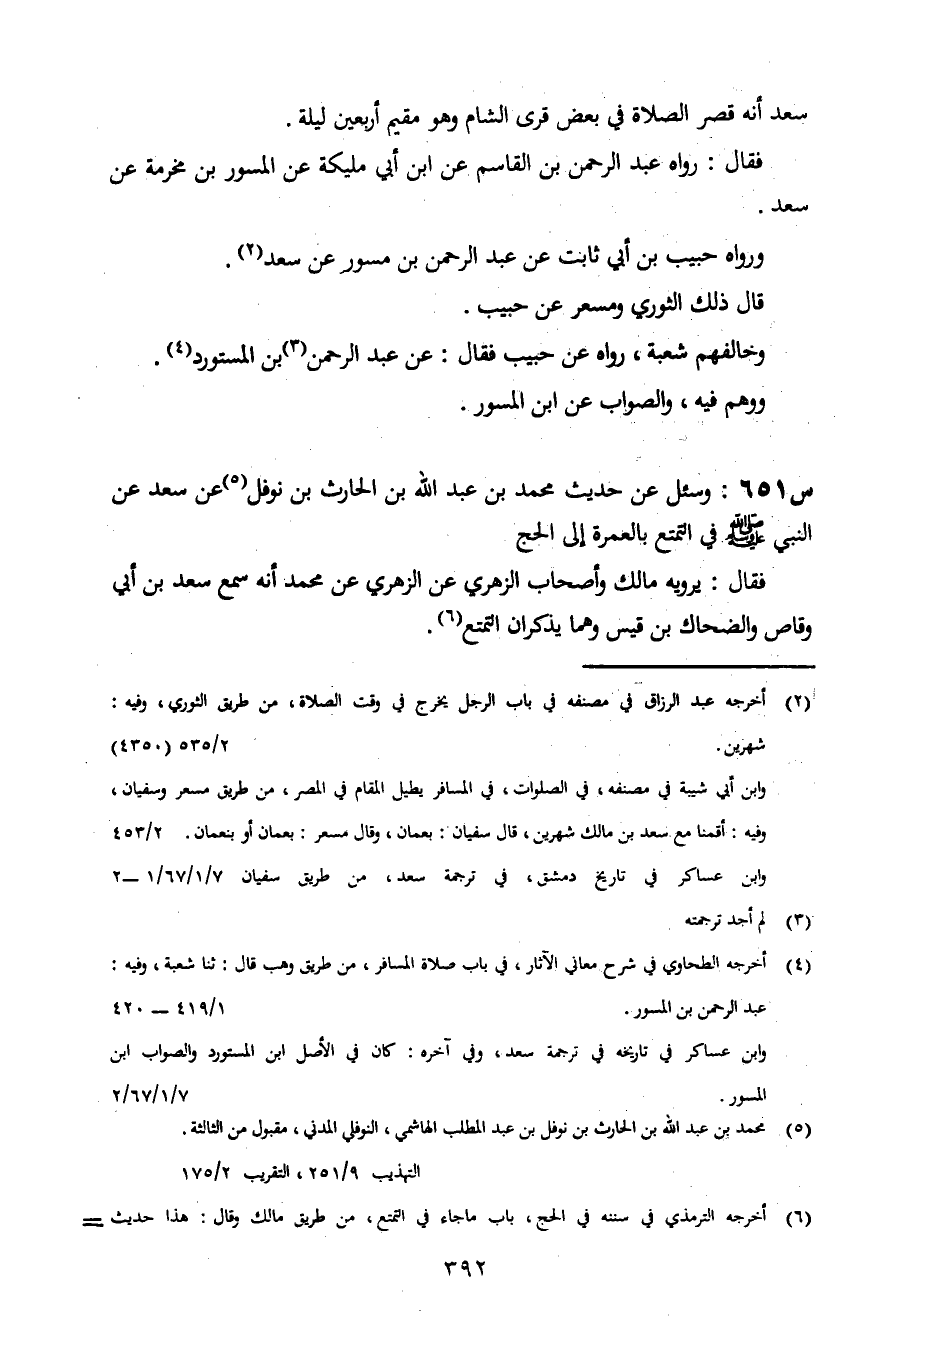 سعد أنه قصر الصلاة في بعض قرى الشام وهو مقيم أربعين ليلة .
فقال : رواه عبد الرحمن بن القاسم عن ابن أبي مليكة عن المسور بن مخرمة عن
سعد .
ورواه حبيب بن أبي ثابت عن عبد الرحمن بن مسور عن سعد(٢) .
قال ذلك الثوري ومسعر عن حبيب .
وخالفهم شعبة ، رواه عن حبيب فقال : عن عبد الرحمن(٣)بن المستورد(٤) .
ووهم فيه ، والصواب عن ابن المسور .
س٦٥١ : وسئل عن حديث محمد بن عبد الله بن الحارث بن نوفل(٥)عن سعد عن
النبي ﷺ في التمتع بالعمرة إلى الحج
فقال : يرويه مالك وأصحاب الزهري عن الزهري عن محمد أنه سمع سعد بن أبي
وقاص والضحاك بن قيس وهما يذكران التمتع(٦) .
(٢) أخرجه عبد الرزاق في مصنفه في باب الرجل يخرج في وقت الصلاة ، من طريق الثوري ، وفيه :
شهرين . ٥٣٥/٢ (٤٣٥٠)
وابن أبي شيبة في مصنفه ، في الصلوات ، في المسافر يطيل المقام في المصر ، من طريق مسعر وسفيان ،
وفيه : أقمنا مع سعد بن مالك شهرين ، قال سفيان : بعمان ، وقال مسعر : بعمان أو بنعمان . ٤٥٣/٢
وابن عساكر في تاريخ دمشق ، في ترجمة سعد ، من طريق سفيان ١/٦٧/١/٧ – ٢
(٣) لم أجد ترجمته
(٤) أخرجه الطحاوي في شرح معاني الآثار ، في باب صلاة المسافر ، من طريق وهب قال : ثنا شعبة ، وفيه :
عبد الرحمن بن المسور . ٤١٩/١ – ٤٢٠
وابن عساكر في تاريخه في ترجمة سعد ، وفي آخره : كان في الأصل ابن المستورد والصواب ابن
المسور . ٢/٦٧/١/٧
(٥) محمد بن عبد الله بن الحارث بن نوفل بن عبد المطلب الهاشمي ، النوفلي المدني ، مقبول من الثالثة .
التهذيب ٢٥١/٩ ، التقريب ١٧٥/٢
(٦) أخرجه الترمذي في سننه في الحج ، باب ماجاء في التمتع ، من طريق مالك وقال : هذا حديث =
٣٩٢